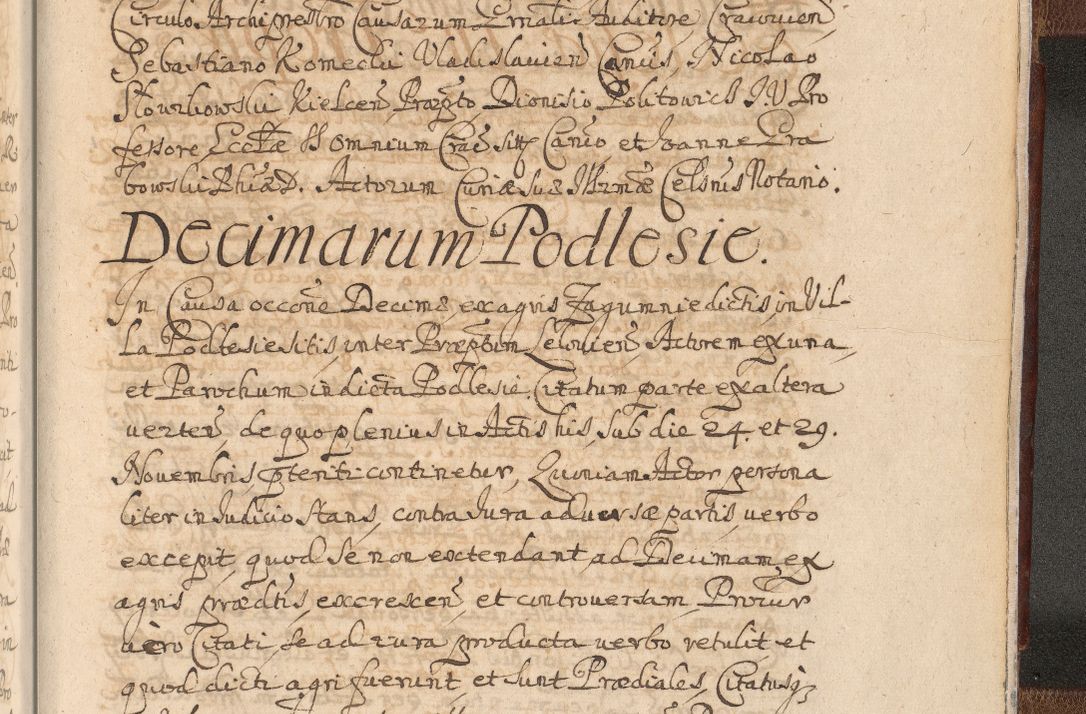 Circulo. Archipresbro Causarum Grnali Auditore, Cracovien
Sebastiano Komecki Uladislavien Canus, Nicolao
Skowrkowski Kielcen Præpto, Dionisio Politowich J. U. Pro
fessore, Eccliæ SS Omnium Crac sittæ Canco et Joanne Gra
bowski Phiæ D. Actorum Curiæ suæ Illrmæ Celsnis Notario.
Decimarum Podlesie.
In Causa occone Decimæ, ex agris Zagumnie dictis, in Vil-
la Podlesie sitis, inter Præptum Lelovien, Actorem ex una,
et Parochum in dicta Podlesie. Citatum parte ex altera
verten, de quo plenius in Actis his, sub die 24. et 29.
Novembris, pteriti continetur, Quoniam Actor persona
liter in Judicio stans, contra Jura adversæ partis, verbo
excepit, quod se non extendant, ad Decimam, ex
agris prædctis, excrescen, et controversam, Procur
vero Citati, se ad iura producta verbo retulit et
quod dicti agri fuerunt, et sunt Prædiales, Citatusq;